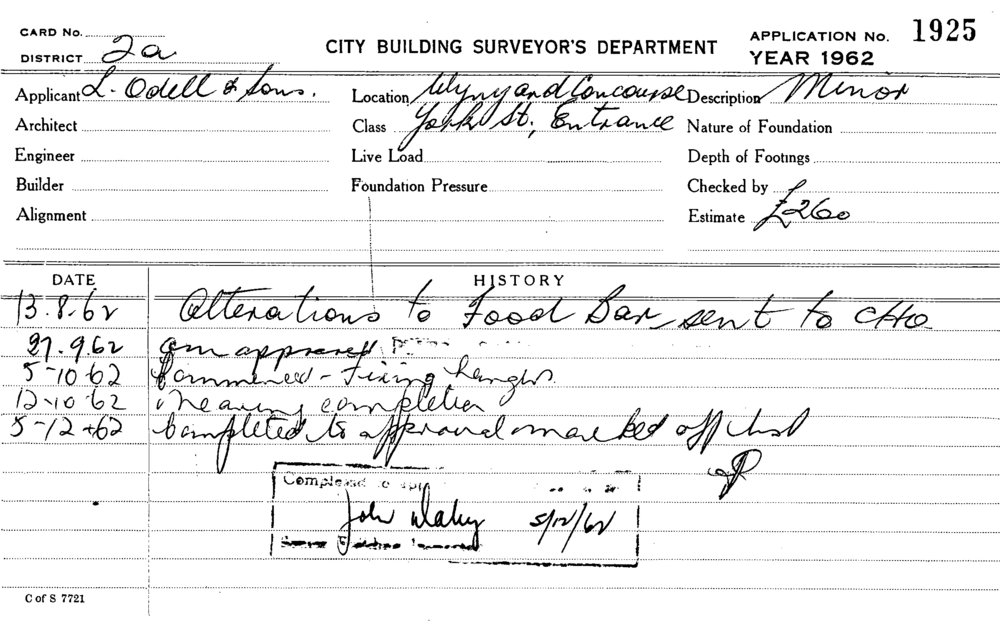 CARD No.
DISTRICT 2a
CITY BUILDING SURVEYOR'S DEPARTMENT
APPLICATION No. 1925
YEAR 1962
Applicant L. Odell & Sons.
Location Wynyard Concourse
Description Minor
Architect
Class York St., Entrance
Nature of Foundation
Engineer
Live Load
Depth of Footings
Builder
Foundation Pressure
Checked by
Alignment
Estimate £260
DATE HISTORY
13.8.62 Alterations to Food Bar sent to CHO
27.9.62 approved
5-10-62 Commenced - Fixing hangers
12-10-62 Nearing completion
5-12-62 Completed to approval marked off
Completed to
John 5/12/62
C of S 7721